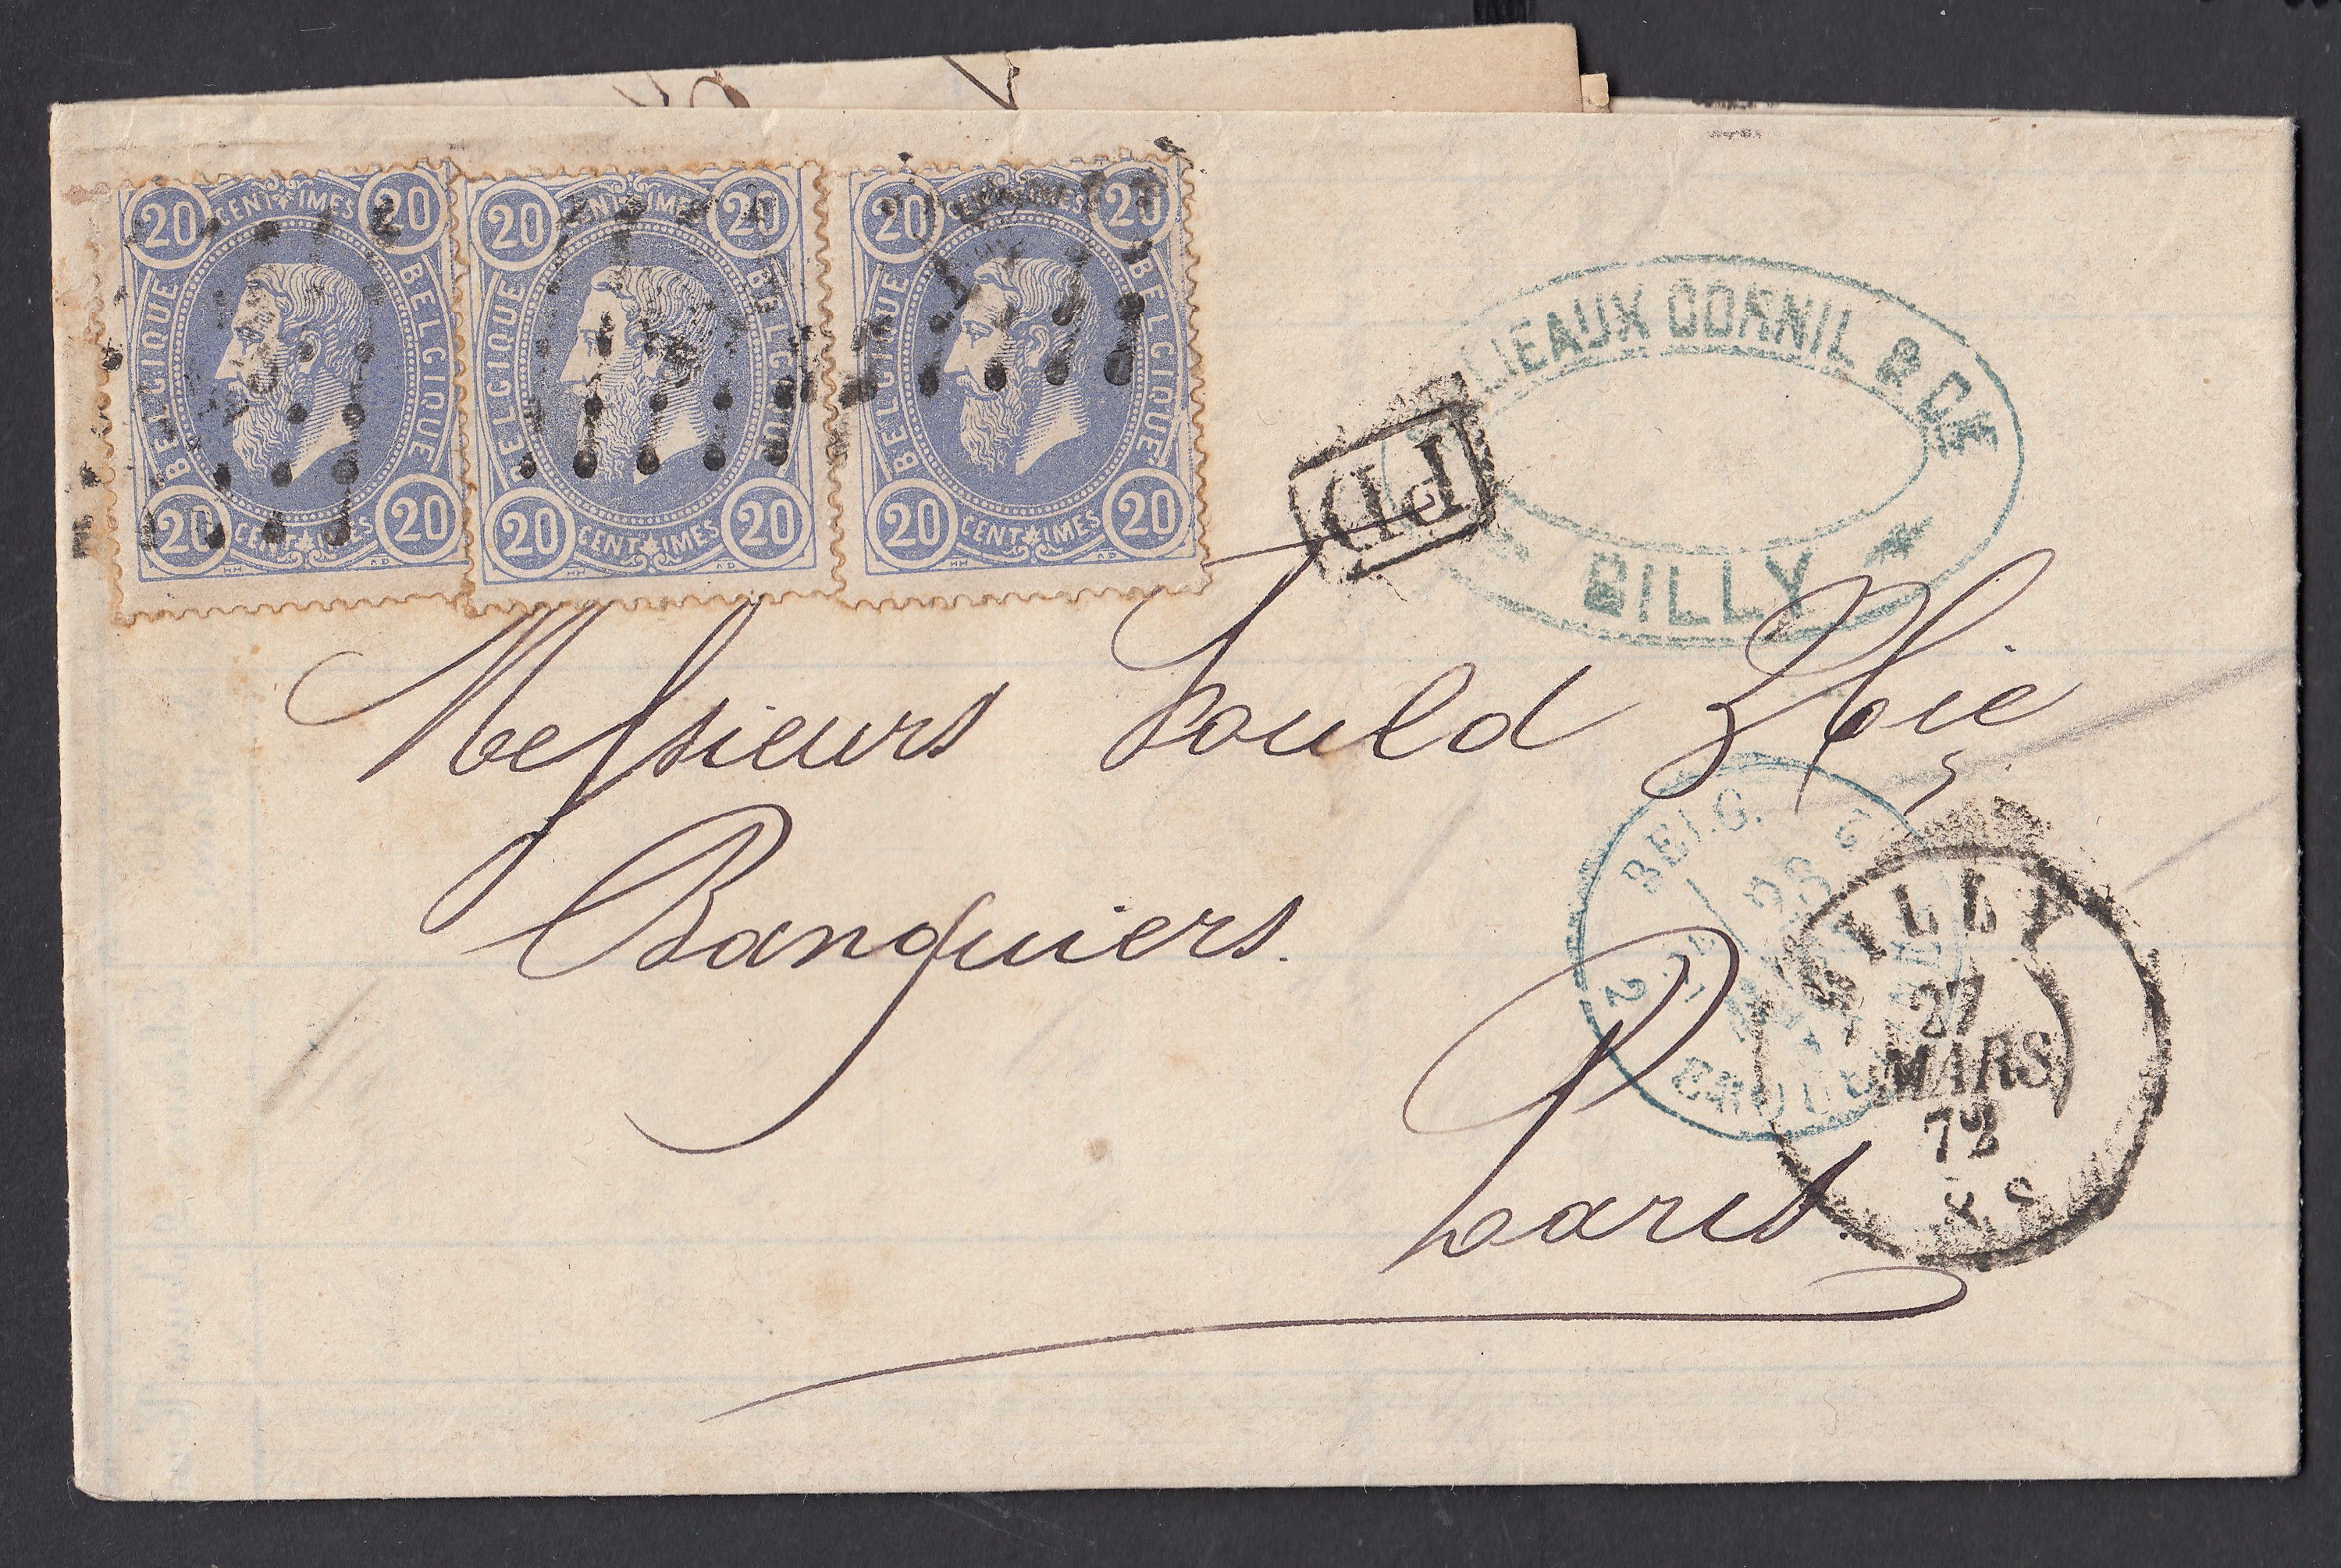 20 CENTIMES 20
BELGIQUE BELGIQUE
20 CENTIMES 20
20 CENTIMES 20
BELGIQUE BELGIQUE
20 CENTIMES 20
20 CENTIMES 20
BELGIQUE BELGIQUE
20 CENTIMES 20
CORNIL & CIE
GILLY
PD
Messieurs Fould & Cie
Banquiers.
Paris
BELG.
28
GILLY
27
MARS
72